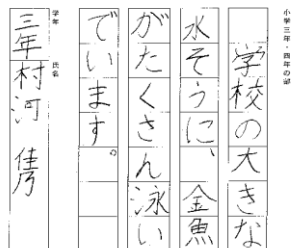 小学三年・四年の部
学校の大きな
水そうに、金魚
がたくさん泳い
でいます。
学年 氏名
三年 村河 佳乃